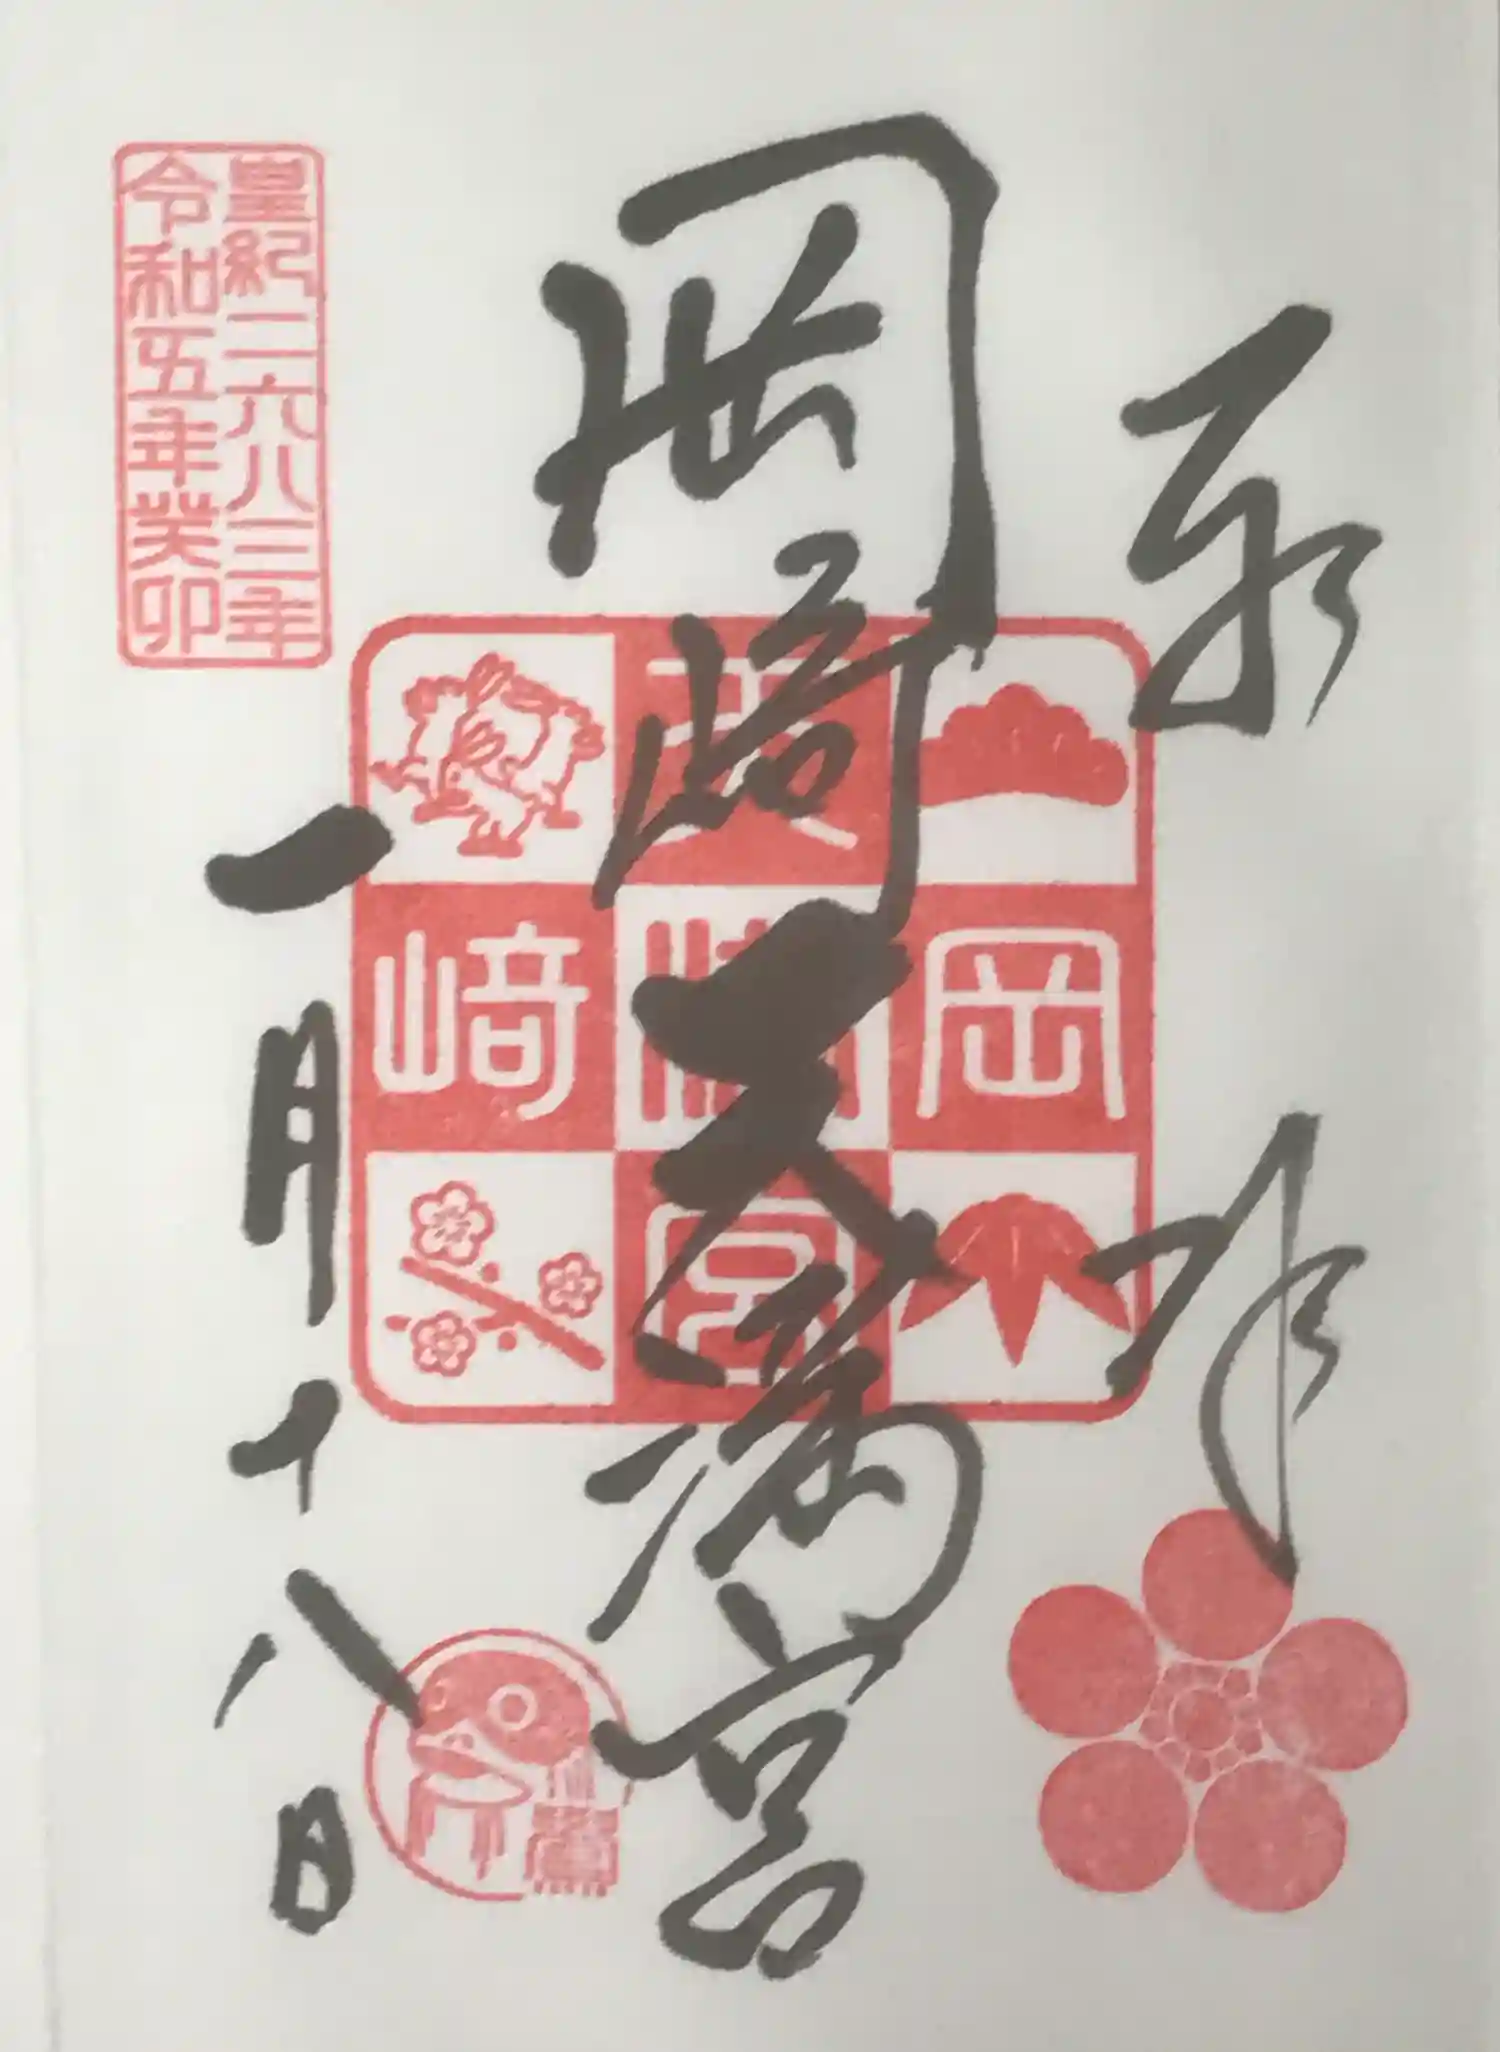 奉拝
岡崎天満宮
一月十八日
皇紀二六八三年
令和五年癸卯
岡
天満宮
﨑